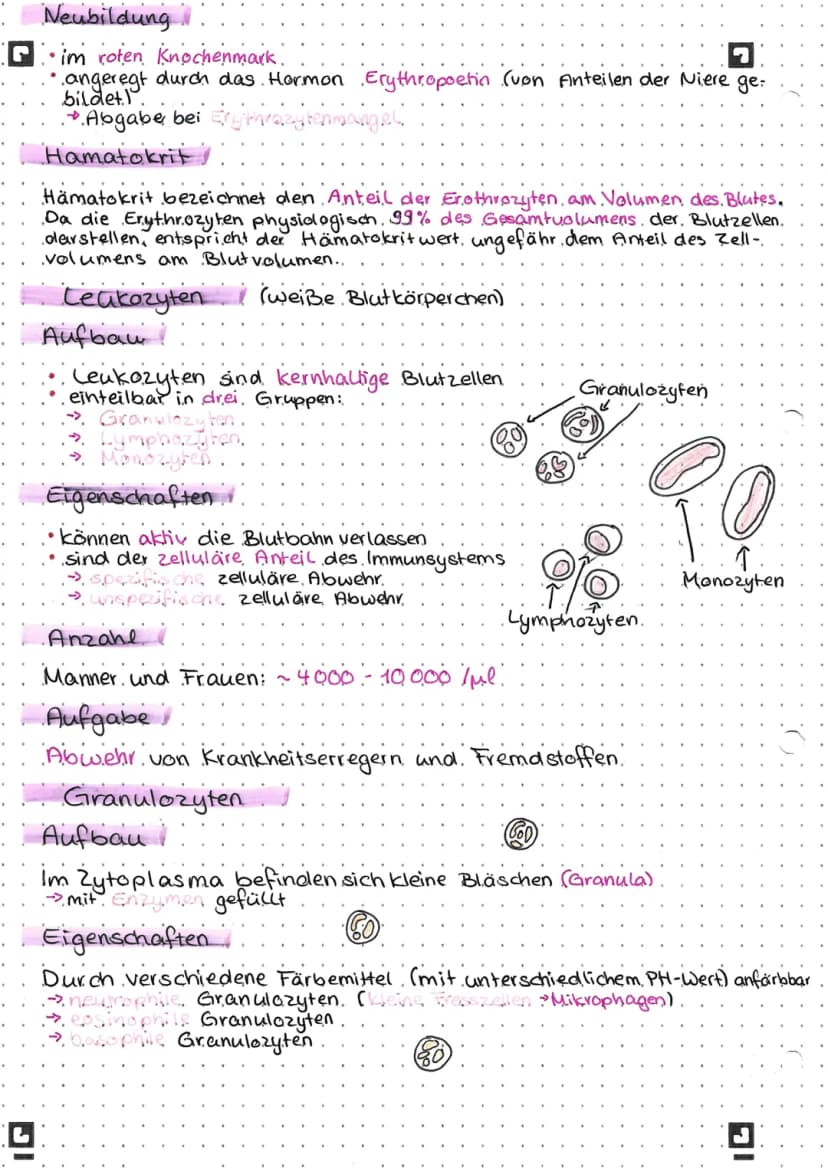 Neubildung
• im roten Knochenmark
• angeregt durch das Hormon Erythropoetin (von Anteilen der Niere ge-
bildet)
→ Abgabe bei Erythrozytenmangel
Hamatokrit
Hämatokrit bezeichnet den Anteil der Erothrozyten am Volumen des Blutes.
Da die Erythrozyten physiologisch 99% des Gesamtvolumens der Blutzellen
darstellen, entspricht der Hämatokritwert ungefähr dem Anteil des Zell-
volumens am Blutvolumen.
Leukozyten (weiße Blutkörperchen)
Aufbau
• Leukozyten sind kernhaltige Blutzellen
• einteilbar in drei Gruppen:
→ Granulozyten
→ Lymphozyten
→ Monozyten
Granulozyten
Monozyten
Lymphozyten
Eigenschaften
• können aktiv die Blutbahn verlassen
• sind der zelluläre Anteil des Immunsystems
→ spezifische zelluläre Abwehr
→ unspezifische zelluläre Abwehr
Anzahl
Manner und Frauen: ~ 4000 - 10 000 /µl
Aufgabe
Abwehr von Krankheitserregern und Fremdstoffen
Granulozyten
Aufbau
Im Zytoplasma befinden sich kleine Bläschen (Granula)
→ mit Enzymen gefüllt
Eigenschaften
Durch verschiedene Färbemittel (mit unterschiedlichem PH-Wert) anfärbbar
→ neutrophile Granulozyten (kleine Fresszellen → Mikrophagen)
→ eosinophile Granulozyten
→ basophile Granulozyten